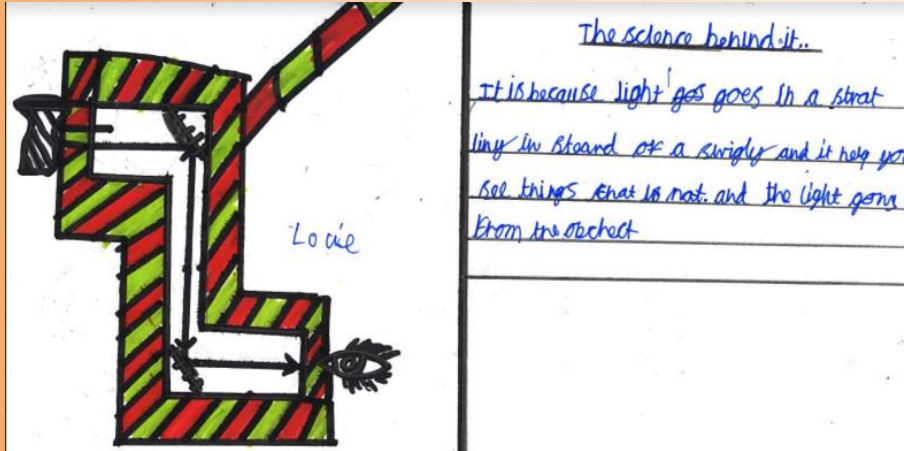 Locie
The science behind it..
It is because light gos goes in a strat
liny in steand of a swigly and it help you
see things that is not. and the light gons
from the obchect